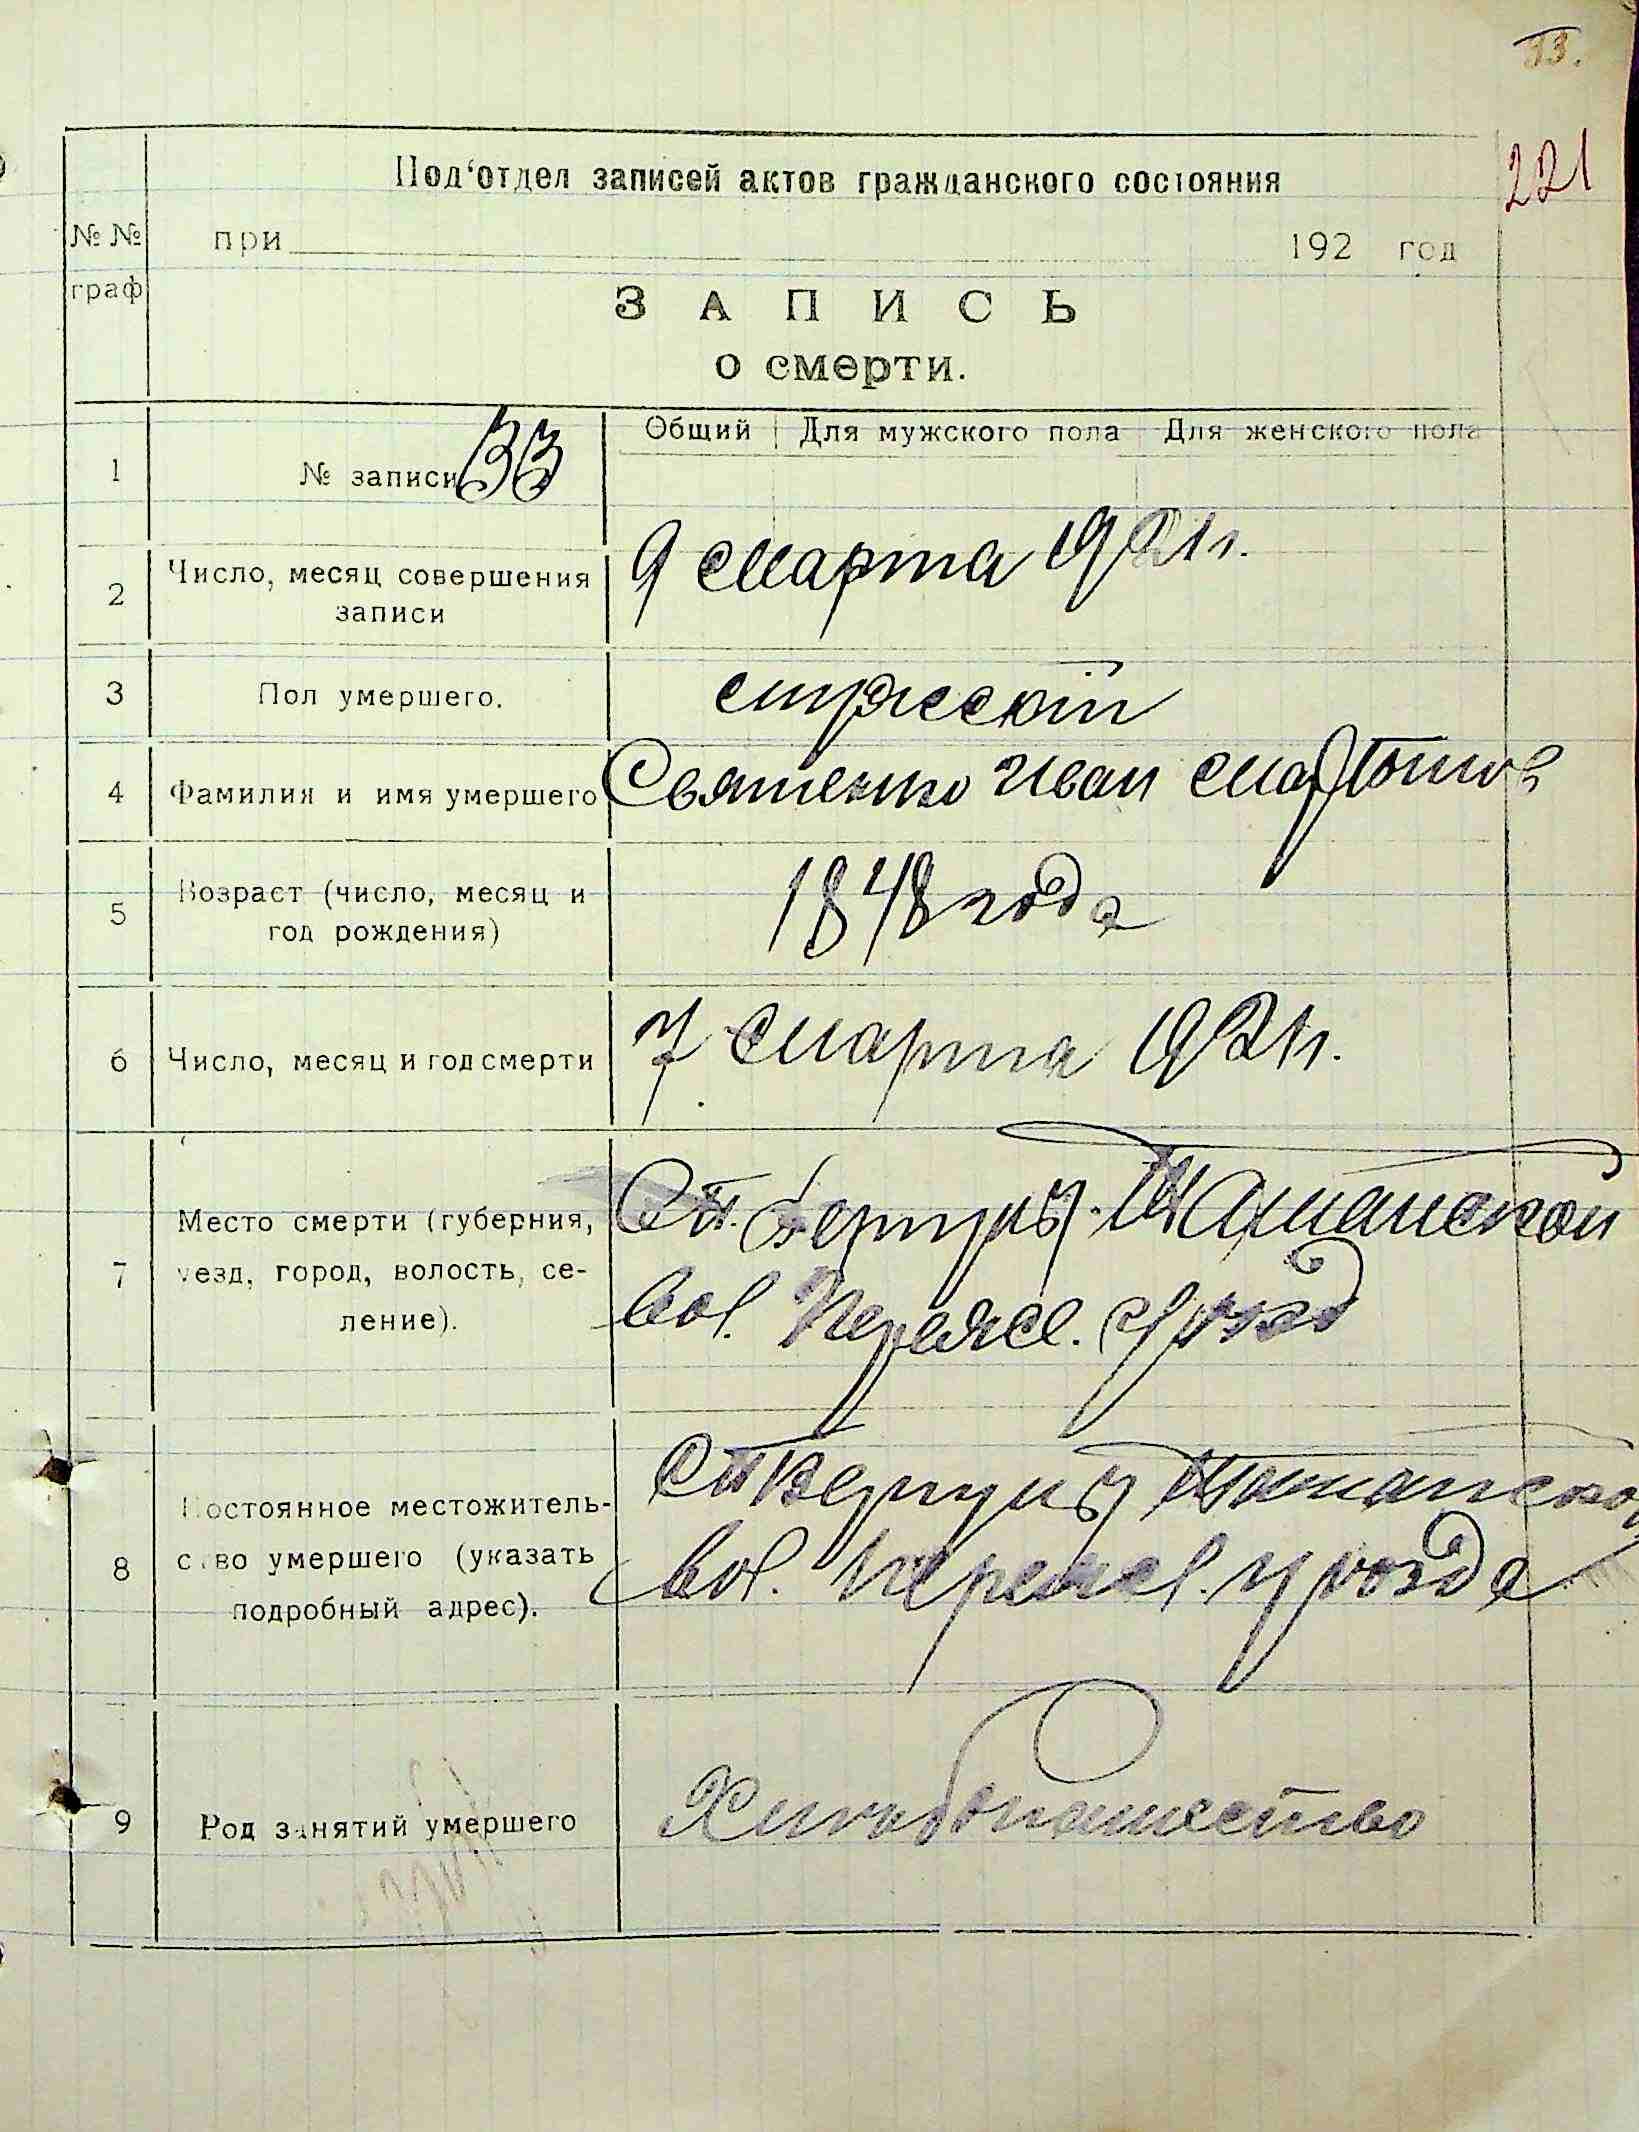 33.
221
Под‘отдел записей актов гражданского состояния
№ №
граф
при 192 год
ЗАПИСЬ
о смерти.
1 № записи 33 Общий Для мужского пола Для женского пола
2 Число, месяц совершения записи
9 марта 1921 г.
3 Пол умершего.
мужской
4 Фамилия и имя умершего
Святенко Иван
5 Возраст (число, месяц и год рождения)
1848 года
6 Число, месяц и год смерти
7 марта 1921 г.
7 Место смерти (губерния, уезд, город, волость, селение).
Ст. Ташанской
вол. Переясл.
8 Постоянное местожительство умершего (указать подробный адрес).
Ст
вол. Переясл. уезда
9 Род занятий умершего
Хлебопашество